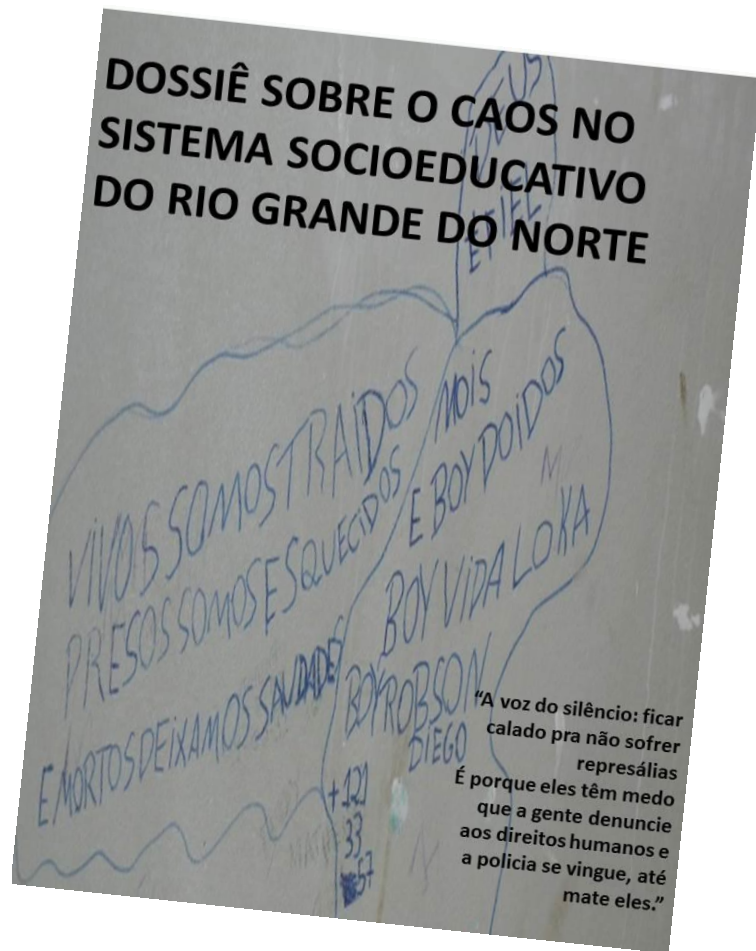 DOSSIÊ SOBRE O CAOS NO
SISTEMA SOCIOEDUCATIVO
DO RIO GRANDE DO NORTE
VIVOS SOMOS TRAiDOS
PRESOS SOMOS ESQUECiDOS
E MORTOS DEiXAMOS SAUDADES
E BOY DOiDOS
BOY ViDA LOKA
BOY ROBSON
DIEGO
+121
33
57
“A voz do silêncio: ficar
calado pra não sofrer
represálias
É porque eles têm medo
que a gente denuncie
aos direitos humanos e
a policia se vingue, até
mate eles.”